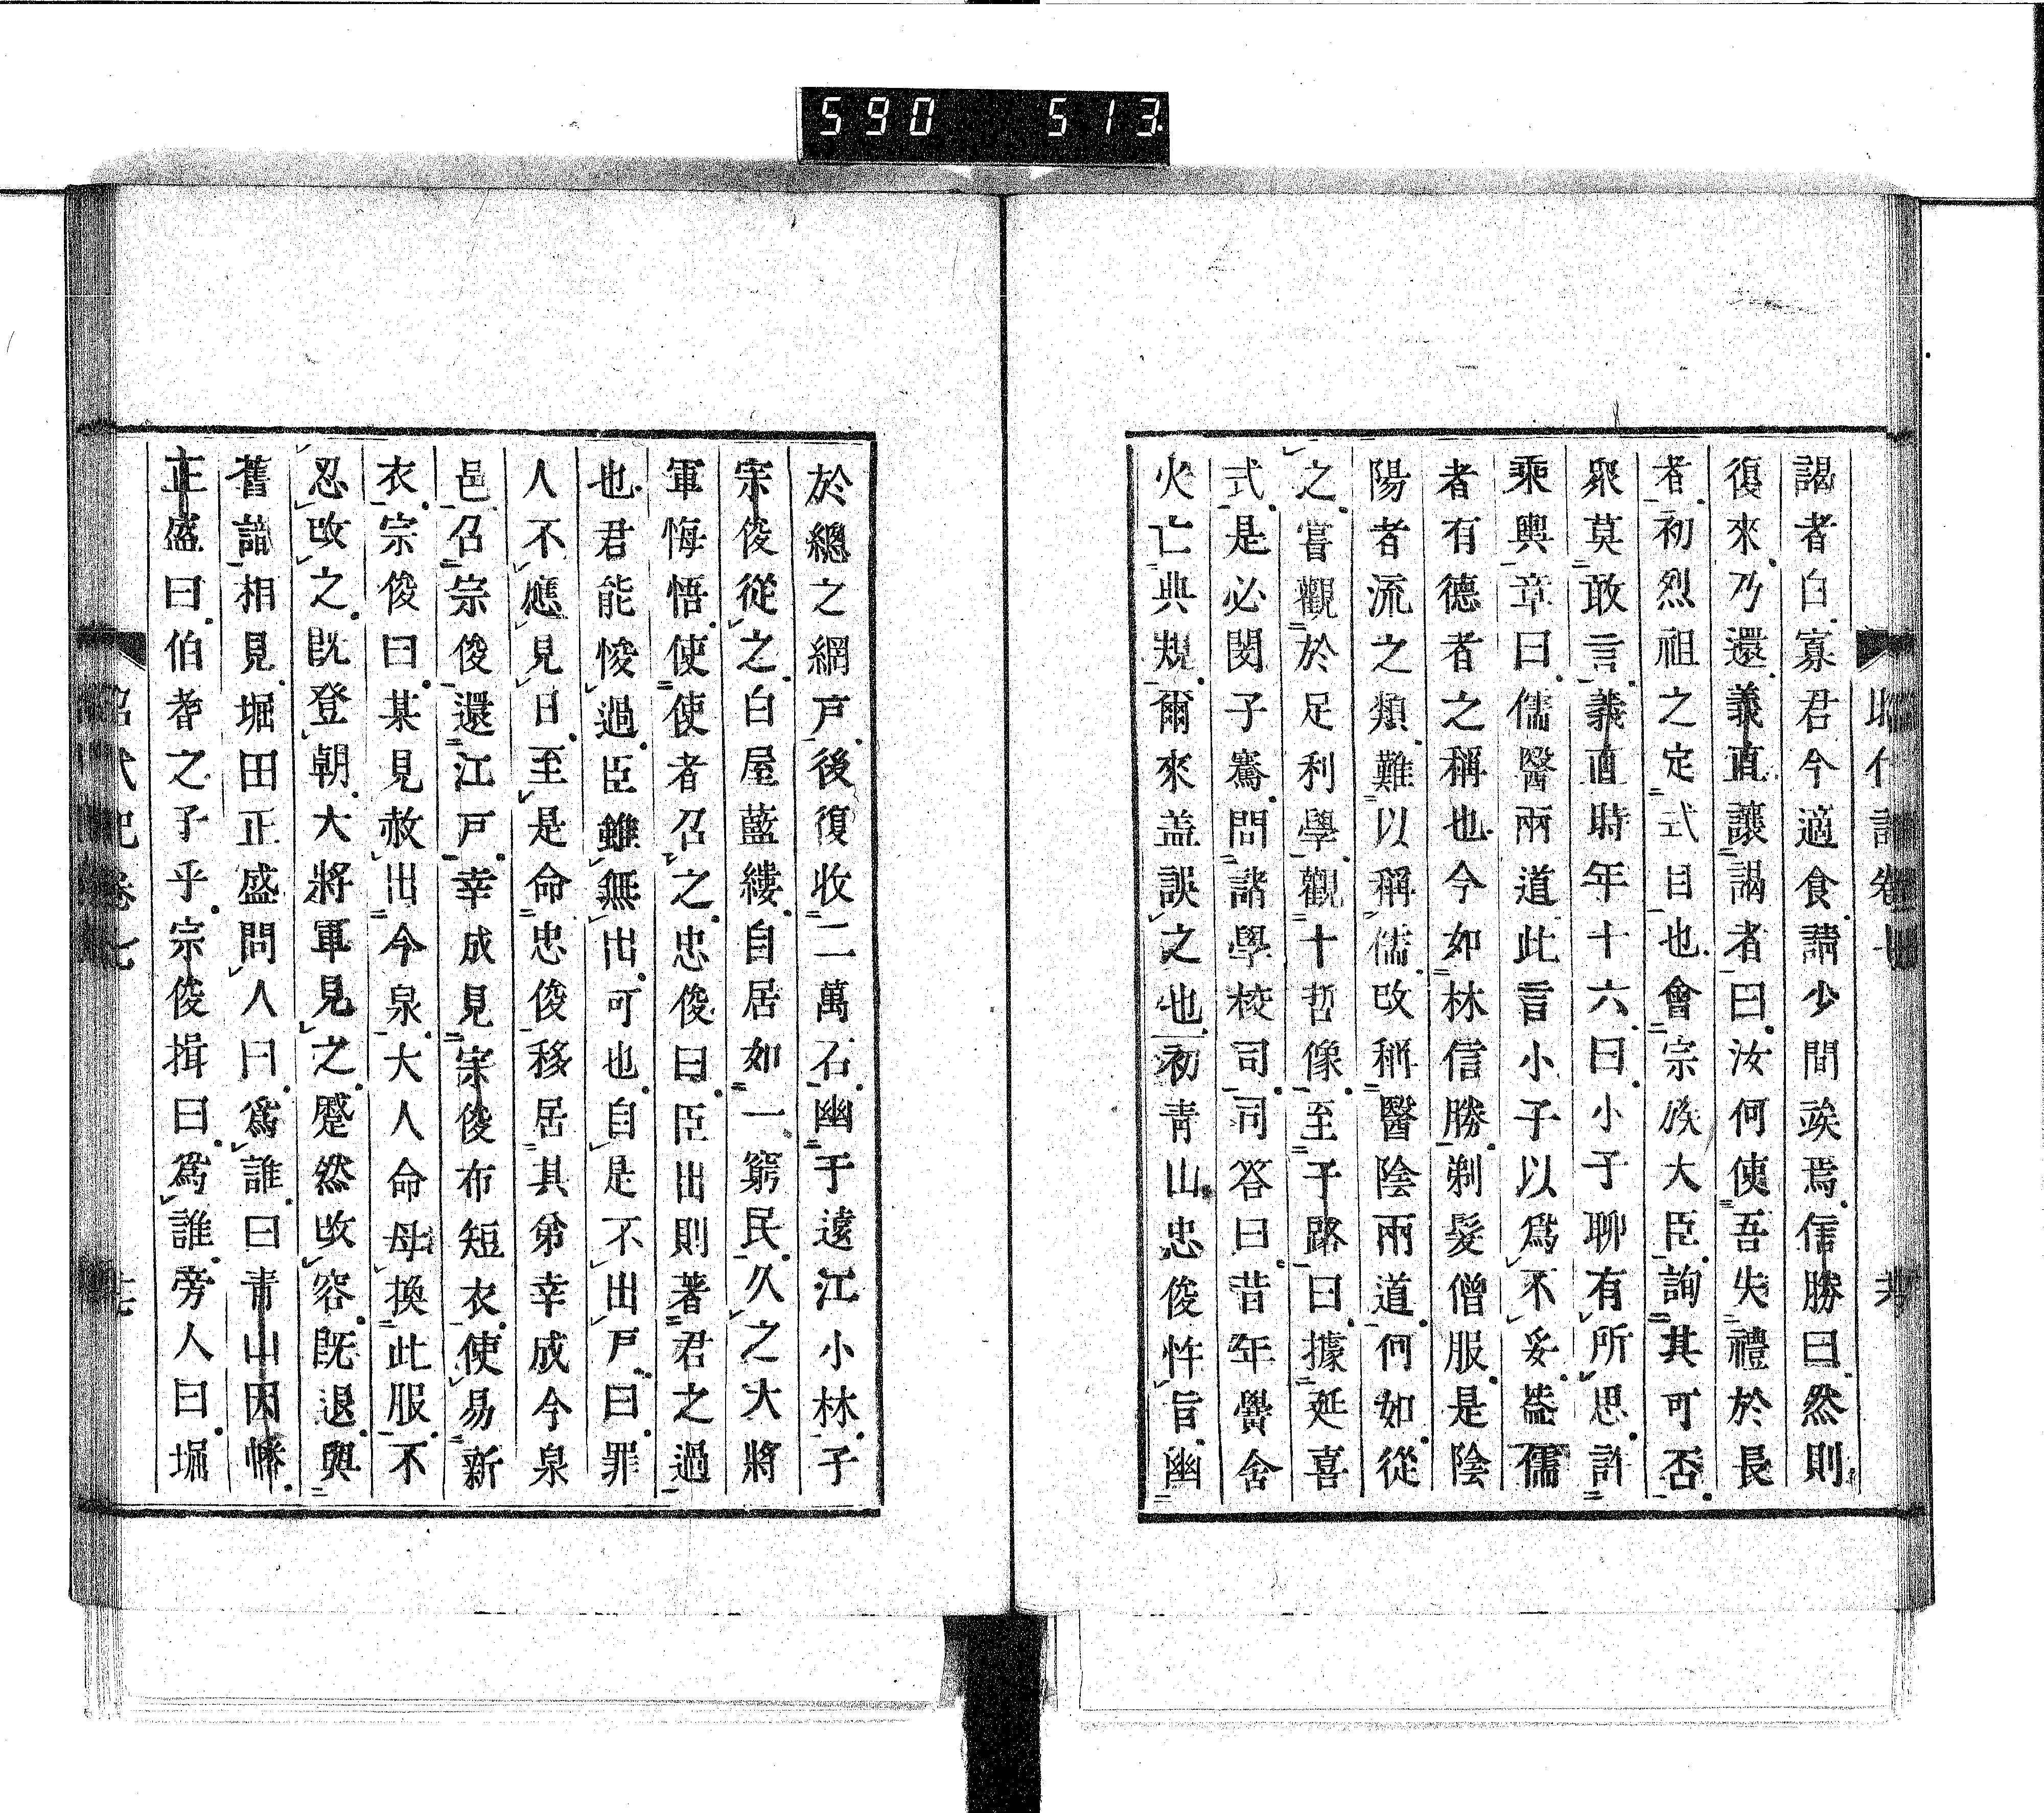 590 513
謁者白寡君今適食請少間竢焉信勝曰然則
復來乃還義直讓謁者曰汝何使吾失禮於長
者初烈祖之定式目也會宗族大臣詢其可否
衆莫敢言義直時年十六曰小子聊有所思許
乘輿章曰儒醫兩道此言小子以爲不妥葢儒
者有德者之稱也今如林信勝剃髮僧服是陰
陽者流之類難以稱儒改稱醫陰兩道何如從
之嘗觀於足利學觀十哲像至子路曰據延喜
式是必閔子騫問諸學校司司答曰昔年黌舍
火亡典規爾來盖誤之也初靑山忠俊忤旨幽
於總之網戸後復收二萬石幽于遠江小林子
宗俊從之白屋藍縷自居如一窮民久之大將
軍悔悟使使者召之忠俊曰臣出則著君之過
也君能悛過臣雖無出可也自是不出戸曰罪
人不應見日至是命忠俊移居其弟幸成今泉
邑召宗俊還江戸幸成見宗俊布短衣使易新
衣宗俊曰某見赦出今泉大人命母換此服不
忍改之既登朝大將軍見之蹙然改容既退與
舊識相見堀田正盛問人曰爲誰曰靑山因幡
正盛曰伯耆之子乎宗俊揖曰爲誰旁人曰堀
卷七